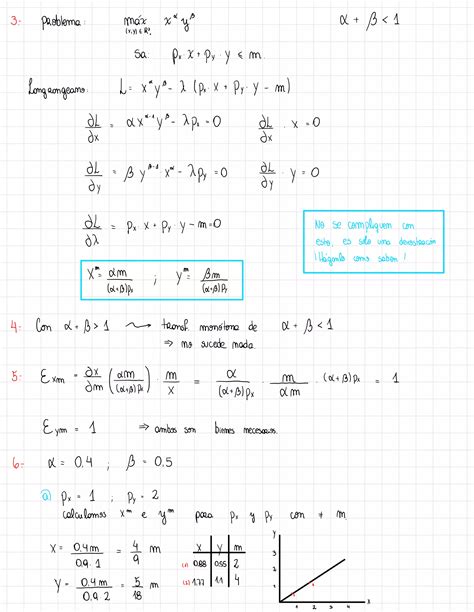 3.- Problema: máx x^α y^β α + β < 1
(x,y) ∈ ℝ²₊
Sa: Pₓ·x + Pᵧ·y ≤ m.
Langrangeano: L = x^α y^β − λ (Pₓ·x + Pᵧ·y − m)
∂L/∂x = αx^(α-1) y^β − λPₓ = 0 ∂L/∂x · x = 0
∂L/∂y = β y^(β-1) x^α − λPᵧ = 0 ∂L/∂y · y = 0
∂L/∂λ = Pₓ x + Pᵧ·y − m = 0
No se compliquen con
esto, es solo una demostración
¡Háganlo como saben!
x^m = αm/((α+β)Pₓ) ; y^m = βm/((α+β)Pᵧ)
4.- Con α + β > 1 ⇝ transf. monótona de α + β < 1
⇒ no sucede nada.
5.- Ɛxm = ∂x/∂m (αm/((α+β)Pₓ)) · m/x = α/((α+β)Pₓ) · m/(αm) · (α+β)Pₓ = 1
Ɛym = 1 ⇒ ambos son bienes necesarios.
6.- α = 0.4 ; β = 0.5
a) Pₓ = 1 ; Pᵧ = 2
calculamos x^m e y^m para Pₓ y Pᵧ con ≠ m
x = 0.4m/(0.9·1) = 4/9 m
y = 0.4m/(0.9·2) = 5/18 m
x y m
(1) 0.88 0.55 2
(2) 1.77 1.1 4
y
3
2
1
1 2 3 x